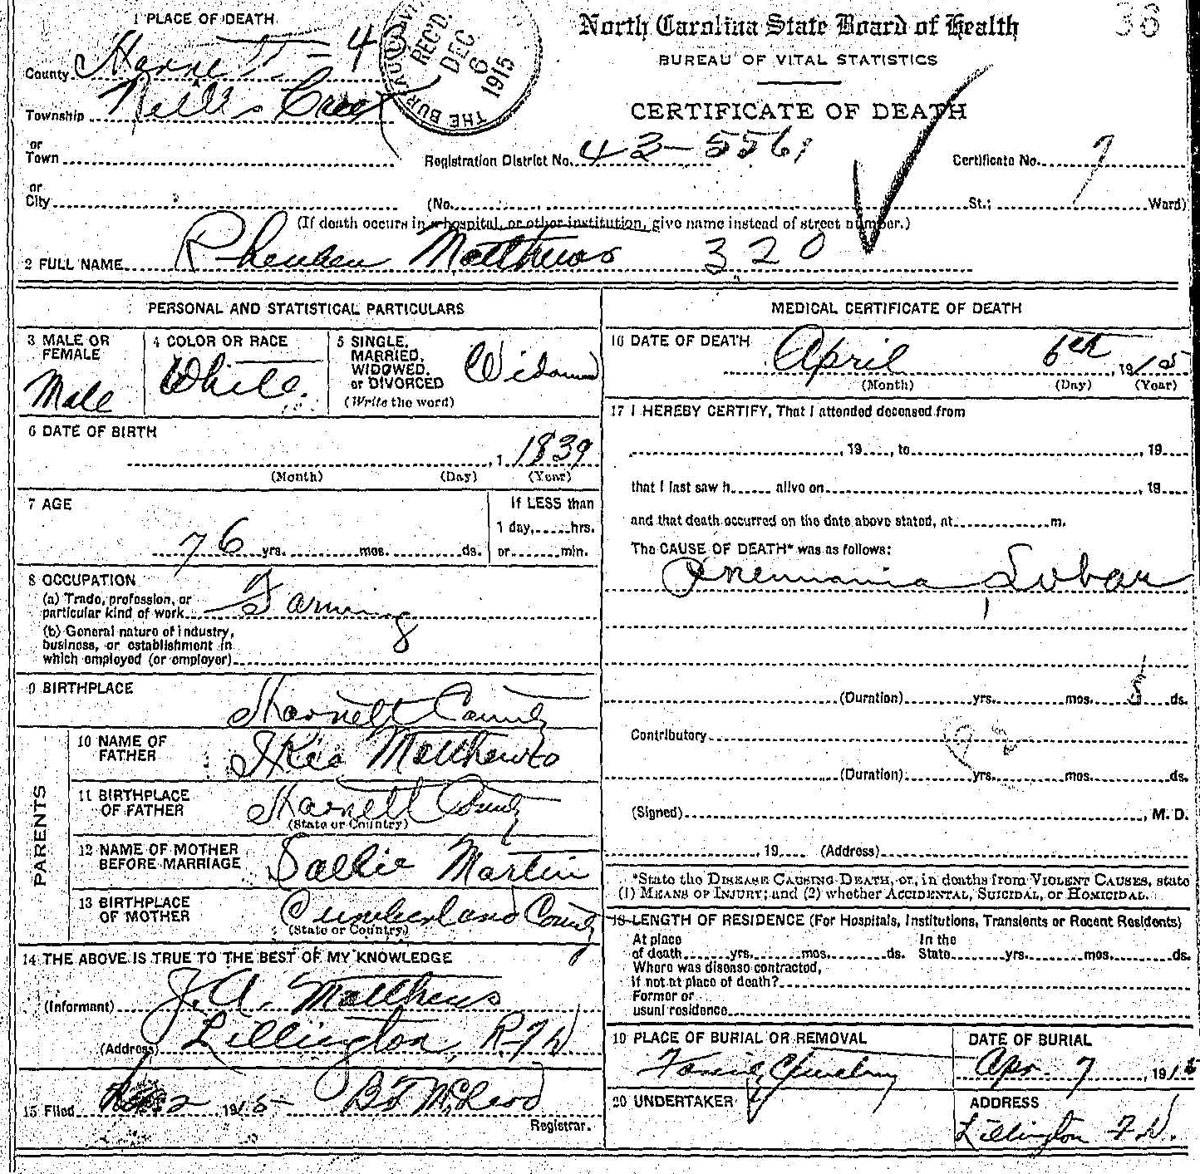 1 PLACE OF DEARTH.
County Harnett - 4
Township Neills Creek
or
Town
or
City
THE BUREAU
REC'D.
DEC
6
1915
North Carolina State Board of Health
36
BUREAU OF VITAL STATISTICS
CERTIFICATE OF DEATH
Registration District No. 43-5561
Certificate No. 7
(No. St.; Ward)
(If death occurs in a hospital, or other institution, give name instead of street number.)
2 FULL NAME Rheuben Matthews 320
PERSONAL AND STATISTICAL PARTICULARS
3 MALE OR FEMALE
Male
4 COLOR OR RACE
White
5 SINGLE,
MARRIED,
WIDOWED,
or DIVORCED
(Write the word)
Widowed
6 DATE OF BIRTH
, 1 1839
(Month) (Day) (Year)
7 AGE
76 yrs. mos. ds.
If LESS than
1 day, hrs.
or min.
8 OCCUPATION
(a) Trade, profession, or
particular kind of work Farming
(b) General nature of industry,
business, or establishment in
which employed (or employer)
9 BIRTHPLACE Harnett County
PARENTS
10 NAME OF
FATHER Matthews
11 BIRTHPLACE
OF FATHER Harnett County
(State or Country)
12 NAME OF MOTHER
BEFORE MARRIAGE Sallie Martin
13 BIRTHPLACE
OF MOTHER Cumberland County
(State or Country)
14 THE ABOVE IS TRUE TO THE BEST OF MY KNOWLEDGE
(Informant) J. A. Matthews
(Address) Lillington, R.F.D
15 Filed 1915 McLeod
Registrar.
MEDICAL CERTIFICATE OF DEATH
16 DATE OF DEATH April 6th 1915
(Month) (Day) (Year)
17 I HEREBY CERTIFY, That I attended deceased from
, 19 , to , 19
that I last saw h alive on , 19
and that death occurred on the date above stated, at m.
The CAUSE OF DEATH* was as follows:
Pneumania, Lobar
(Duration) yrs. mos. 5 ds.
Contributory 92
(Duration) yrs. mos. ds.
(Signed) , M.D.
, 19 (Address)
*State the DISEASE CAUSING DEATH, or, in deaths from VIOLENT CAUSES, state
(1) MEANS OF INJURY; and (2) whether ACCIDENTAL, SUICIDAL, OR HOMICIDAL.
18 LENGTH OF RESIDENCE (For Hospitals, Institutions, Transients or Recent Residents)
At place In the
of death yrs. mos. ds. State yrs. mos. ds.
Where was disease contracted,
if not at place of death?
Former or
usual residence
19 PLACE OF BURIAL OR REMOVAL
DATE OF BURIAL
Apr. 7 1915
20 UNDERTAKER
ADDRESS
Lillington F.D.